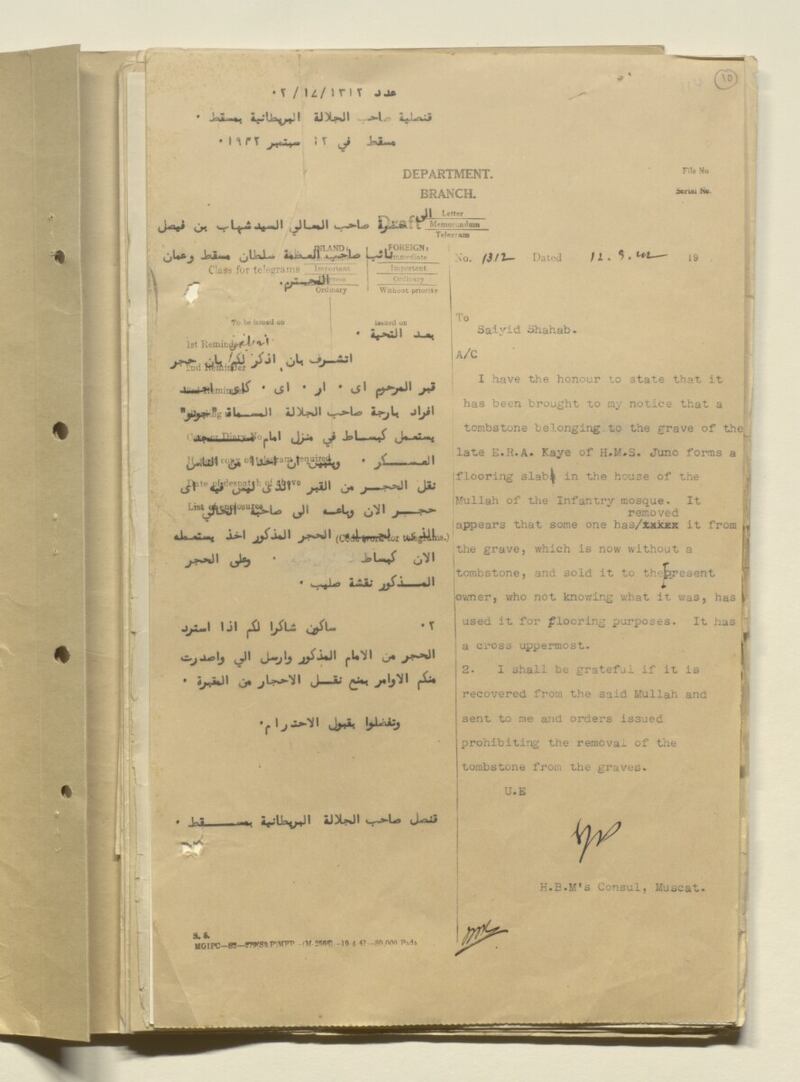 ١٥
عدد ١٣١٢/١٤/٠٢
قنصلية صاحب الجلالة البريطانية بمسقط ٠
مسقط في ١٢ سبتمبر ١٩٤٢٠
DEPARTMENT.
BRANCH.
File No
Serial No.
Draft
Letter
Memorandum
Telegram
الى
حضرة صاحب المعالي السيد شهاب بن فيصل
نائب صاحب العظمة سلطان مسقط وعمان
المحترم٠
INLAND:
FOREIGN:
Immediate
Class for telegrams
Important
Important
Ordinary
Ordinary
Without priority
No. 1312 Dated 12.9.42 19
To be issued on
issued on
بعد التحية ٠
1st Reminder
2nd Reminder
اتشرف بان اذكر لكم بان حجر
قبر المرحوم اى ٠ ار ٠ اى ٠ كاى احد
افراد بارجة صاحب الجلالة المسماة "جونو"
يستعمل كبساط في منزل امام مسجد
العسكر ٠ ويتبين ان احدا من الناس
نقل الحجر من القبر الذى ليس فيه اى
حجر الان وباعه الى صاحبه الحالي
الحجر المذكور اخذ يستعمله
الان كبساط ٠ وعلى الحجر
المذكور نقشة صليب ٠
٢٠ ساكون شاكرا لكم اذا استرد
الحجر من الامام المذكور وارسل الي واصدرت
منكم الاوامر بمنع نقل الاحجار من المقبرة ٠
وتفضلوا بقبول الاحترام٠
قنصل صاحب الجلالة البريطانية بمسقط ٠
To
Saiyid Shahab.
A/C
I have the honour to state that it
has been brought to my notice that a
tombstone belonging to the grave of the
late E.R.A. Kaye of H.M.S. Juno forms a
flooring slab in the house of the
Mullah of the Infantry mosque. It
removed
appears that some one has/xxxxx it from
the grave, which is now without a
tombstone, and sold it to the present
owner, who not knowing what it was, has
used it for flooring purposes. It has
a cross uppermost.
2. I shall be grateful if it is
recovered from the said Mullah and
sent to me and orders issued
prohibiting the removal of the
tombstone from the graves.
U.E
H.B.M's Consul, Muscat.
S. 6.